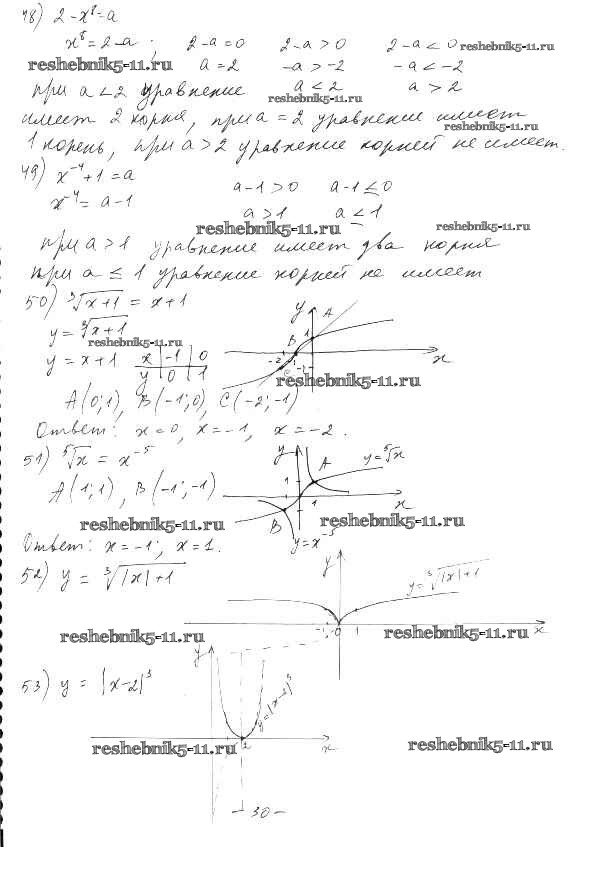 48) 2-x⁸=a
x⁸=2-a; 2-a=0 2-a>0 2-a<0 reshebnik5-11.ru
reshebnik5-11.ru a=2 -a>-2 -a<-2
при a<2 уравнение reshebnik5-11.ru a<2 a>2
имеет 2 корня, при a=2 уравнение имеет
reshebnik5-11.ru
1 корень, при a>2 уравнение корней не имеет.
49) x⁻⁴+1=a
x⁻⁴=a-1 a-1>0 a-1≤0
a>1 a≤1
reshebnik5-11.ru reshebnik5-11.ru
при a>1 уравнение имеет два корня
при a≤1 уравнение корней не имеет
50) ³√x+1 = x+1
y=³√x+1
reshebnik5-11.ru
y=x+1 x -1 0
y 0 1
y A 1 B -2 -1 C -1 x
reshebnik5-11.ru
A(0;1), B(-1;0), C(-2;-1)
Ответ: x=0, x=-1, x=-2.
51) ⁵√x = x⁻⁵
y A y=⁵√x 1 1 x B y=x⁻⁵
A(1;1), B(-1;-1)
reshebnik5-11.ru reshebnik5-11.ru
Ответ: x=-1; x=1.
52) y = ³√|x|+1
y y=³√|x|+1
-1 0 1 x
reshebnik5-11.ru reshebnik5-11.ru
53) y = |x-2|³
y y=|x-2|³
2 x
reshebnik5-11.ru reshebnik5-11.ru
-30-